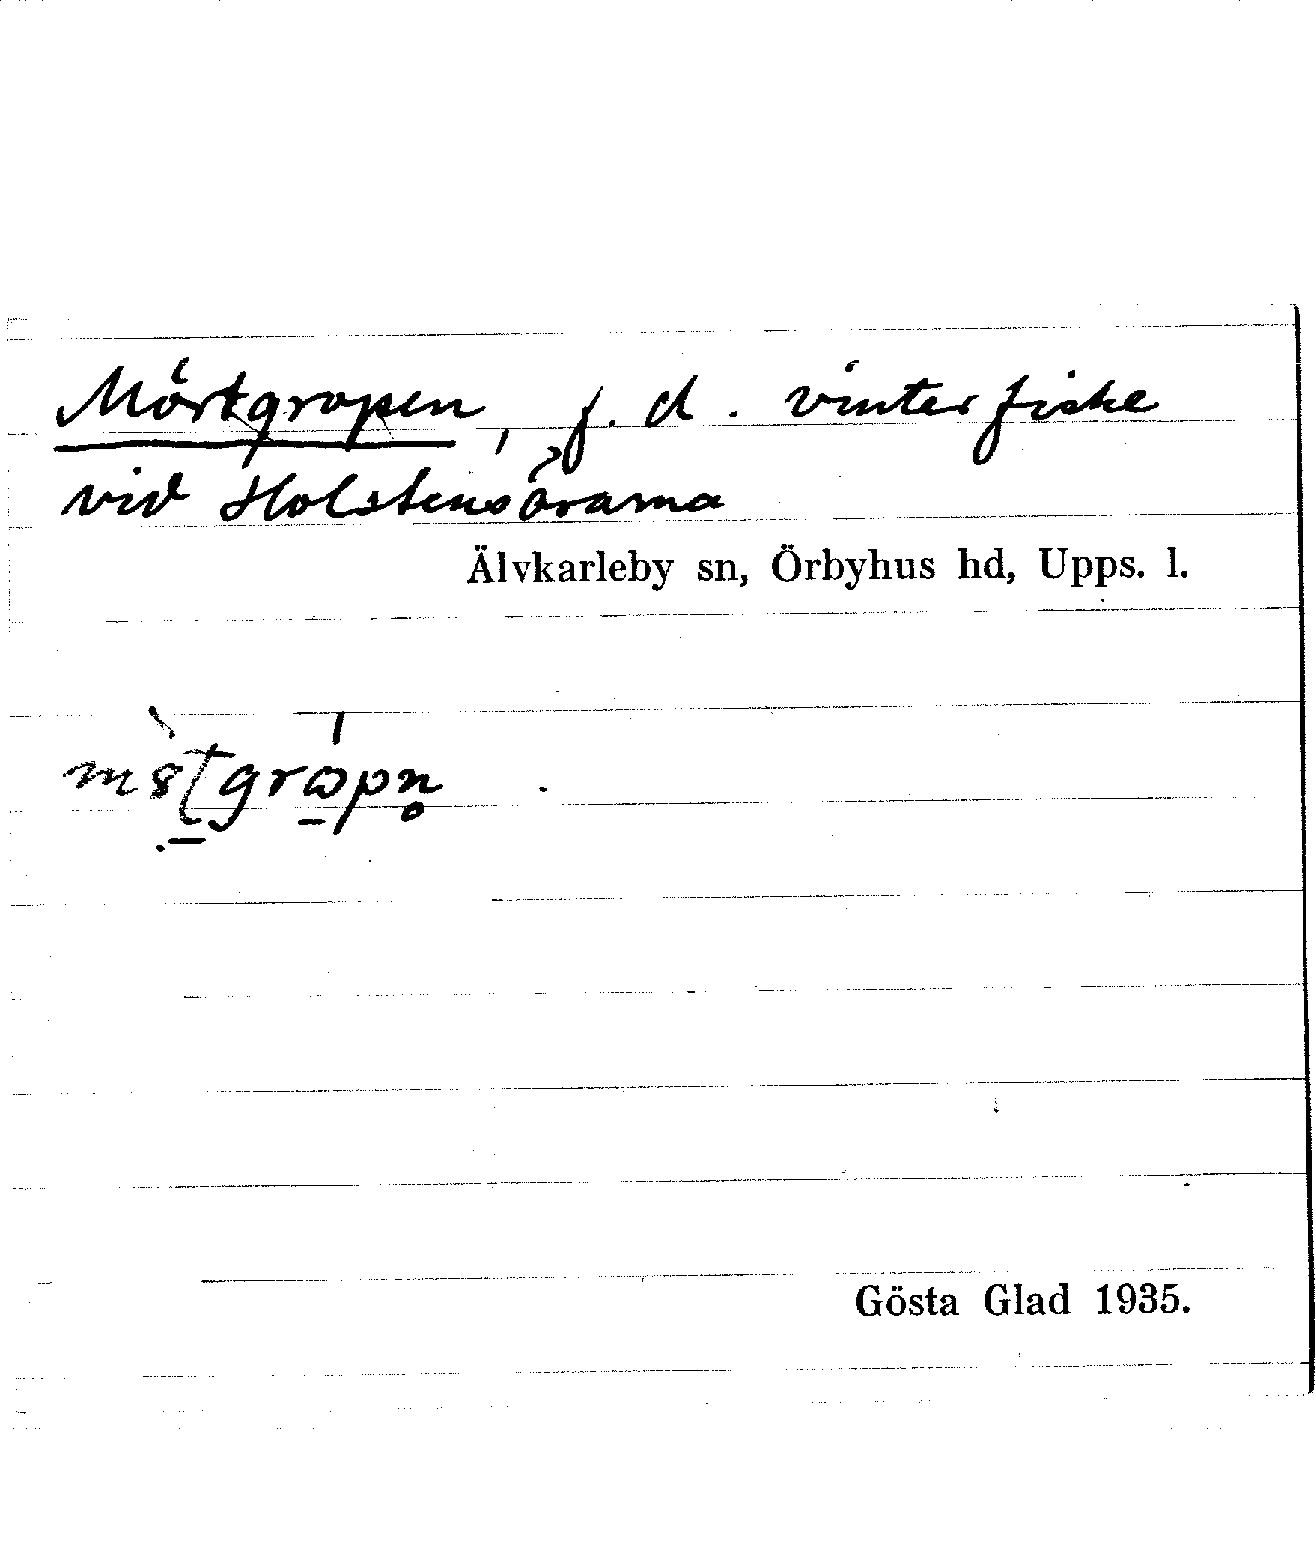 Mörtgropen, f.d. vinterfiske
vid Holstensårarna
Älvkarleby sn, Örbyhus hd, Upps. l.
Gösta Glad 1935.